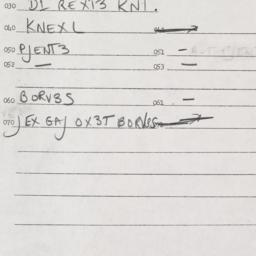 030 D1 REX13 KN1.
040 KNEXL
050 PJENT3 052 –
052 — 053 —
060 BORV3S 061 —
070 JEX GAJ OX3T BORV3S